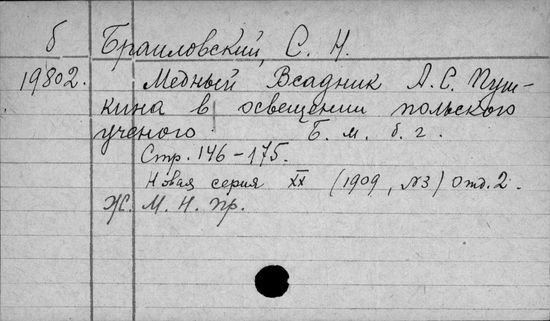 б Браиловский, С. Н.
19802. Медный Всадник А.С. Пуш-
кина в освещении польского
ученого. Б. м. б. г.
Стр. 146-175.
Новая серия XX (1909, №3) Отд. 2.
Ж. М. Н. Пр.